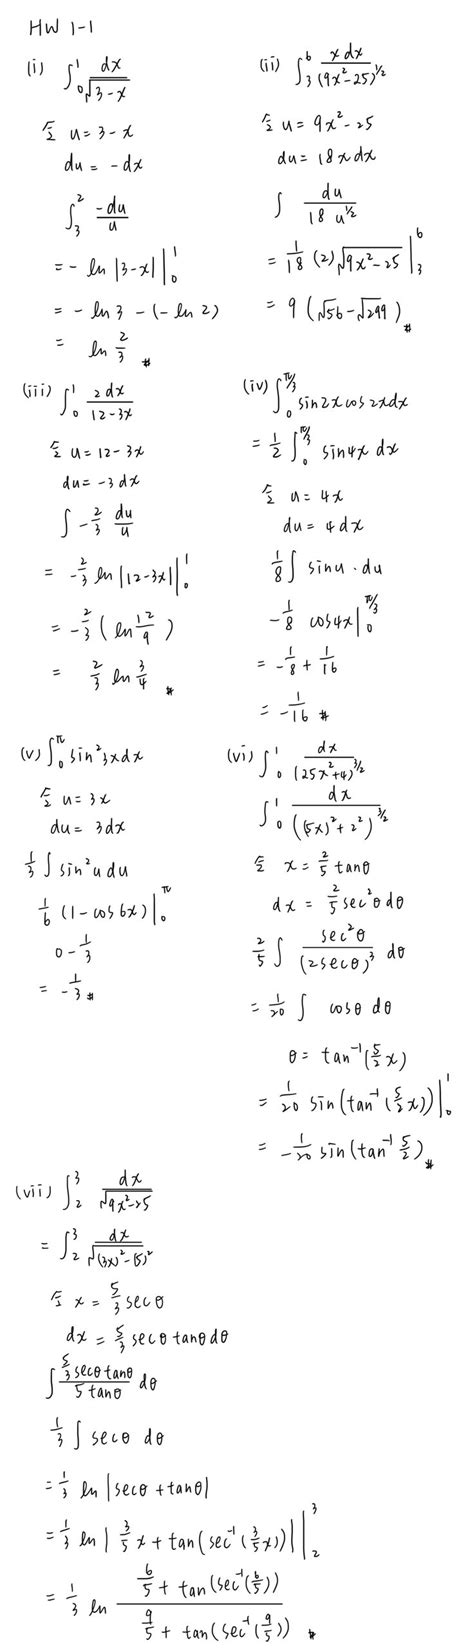 HW 1-1
(i) ∫₀¹ dx/√(3-x)
令 u = 3-x
du = -dx
∫₃² -du/u
= -ln|3-x| |₀¹
= -ln3 - (-ln2)
= ln 2/3 #
(ii) ∫₃⁶ x dx/(9x²-25)^(1/2)
令 u = 9x²-25
du = 18x dx
∫ du/(18 u^(1/2))
= 1/18 (2)√(9x²-25) |₃⁶
= 9(√56 - √299) #
(iii) ∫₀¹ 2dx/(12-3x)
令 u = 12-3x
du = -3dx
∫ -2/3 du/u
= -2/3 ln|12-3x| |₀¹
= -2/3 (ln 12/9)
= 2/3 ln 3/4 #
(iv) ∫₀^(π/3) sin2x cos2x dx
= 1/2 ∫₀^(π/3) sin4x dx
令 u = 4x
du = 4dx
1/8 ∫ sinu · du
-1/8 cos4x |₀^(π/3)
= -1/8 + 1/16
= -1/16 #
(v) ∫₀^π sin²3x dx
令 u = 3x
du = 3dx
1/3 ∫ sin²u du
1/6 (1-cos6x) |₀^π
0 - 1/3
= -1/3 #
(vi) ∫₀¹ dx/(25x²+4)^(3/2)
∫₀¹ dx/((5x)²+2²)^(3/2)
令 x = 2/5 tanθ
dx = 2/5 sec²θ dθ
2/5 ∫ sec²θ/(2secθ)³ dθ
= 1/20 ∫ cosθ dθ
θ = tan⁻¹(5/2 x)
= 1/20 sin(tan⁻¹(5/2 x)) |₀¹
= -1/20 sin(tan⁻¹ 5/2) #
(vii) ∫₂³ dx/√(9x²-25)
= ∫₂³ dx/√((3x)²-(5)²)
令 x = 5/3 secθ
dx = 5/3 secθ tanθ dθ
∫ (5/3 secθ tanθ)/(5 tanθ) dθ
1/3 ∫ secθ dθ
= 1/3 ln|secθ + tanθ|
= 1/3 ln|3/5 x + tan(sec⁻¹(3/5 x))| |₂³
= 1/3 ln (6/5 + tan(sec⁻¹(6/5)))/(9/5 + tan(sec⁻¹(9/5))) #